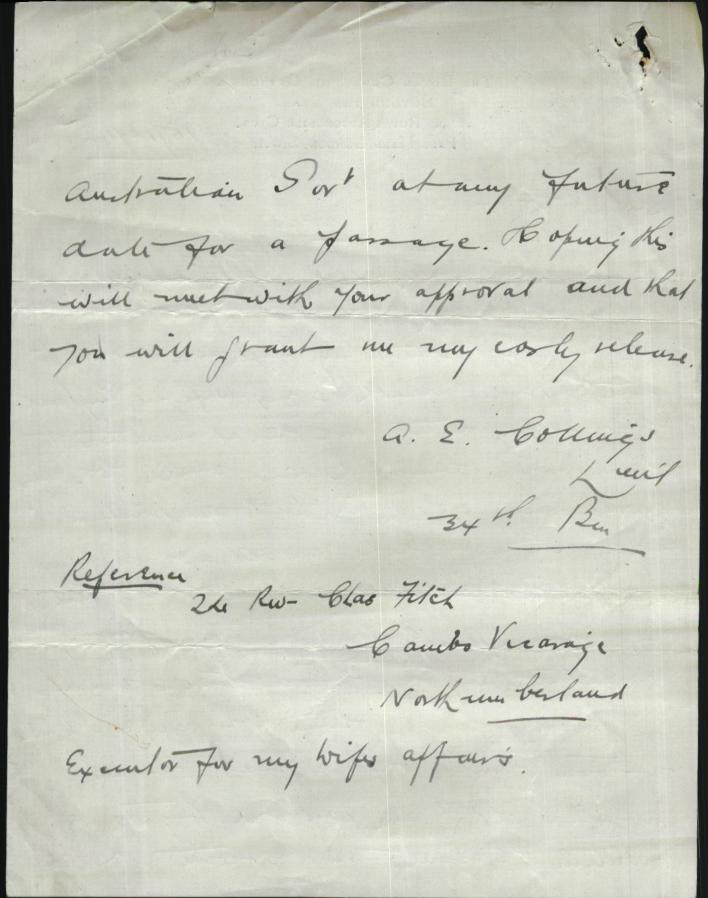 Australian Govt at any future
date for a passage. Hoping this
will meet with your approval and that
you will grant me my early release.
A. E. Collings
Lieut
34th Bn
Reference
Rev Chas Fitch
Cambo Vicarage
Northumberland
Executor for my wifes affairs.